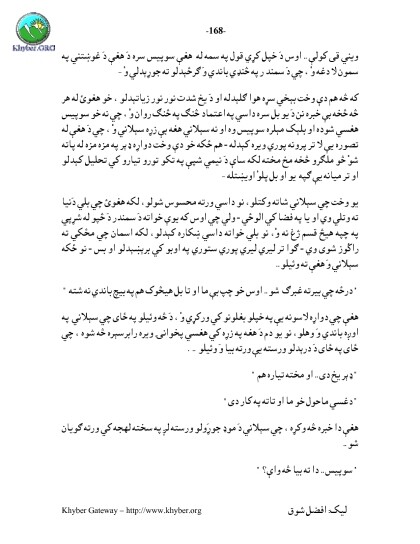 -168-
Khyber.ORG
ويني قی کولې .. اوس دَ خپل کړي قول په سمه له هغې سوپيس سره دَ هغې دَ غوښتني په
سمون لا دغه وُ ، چي دَ سمندر په څنډي باندي وَ ګرځېدلو ته جوړيدلي وُ -
که څه هم دې وخت بيخي سړه هوا ګلېدله او دَ يخ شدت نور نور زياتيدلو ، خو هغوئ له هر
څه څخه بې خبره نن دَ يو بل سره داسي په اعتماد څنګ په څنګ روان وُ ، چي نه خو سوپيس
هغسي شوده او بلېک ميلره سوپيس وه او نه سيلاني هغه بې زړه سيلاني وُ ، چي دَ هغې له
تصوره يې لا تر پرونه پوري ويره کېدله - هم ځکه خو دې وخت دواړه ډېر په مزه مزه له پاته
شوُ څو ملګرو څخه مخ مخته لکه سايَ دَ نيمي شپې په تکو تورو تيارو کي تحليل کېدلو
او تر ميانه يې ګپه يو او بل پلوُ اويښتله -
يو وخت چي سيلاني شاته وکتلو ، نو داسي ورته محسوس شولو ، لکه هغوئ چي بلي دَنيا
ته وتلي وي او يا په فضا کي الوځي - ولي چي اوس که يوې خواته دَ سمندر دَ څپو له شړپي
په چپه هيڅ قسم ژغ نه وُ ، نو بلي خواته داسي ښکاره کېدلو ، لکه اسمان چي مځکي ته
راګوز شوی وي - ګوا تر ليري ليري پوري ستوري په اوبو کي برېښېدلو او بس - نو ځکه
سيلاني وَ هغې ته وئيلو ..
" درځه چي بېرته غبرګ شو .. اوس خو چپ بې ما او تا بل هيڅوک هم په بيچ باندي نه شته "
هغې چي دواړه لاسونه يې په خپلو بغلونو کي ورکړي وُ ، دَ څه وئيلو په ځای چي سيلاني په
اوږه باندي وَ وهلو ، نو يو دم دَ هغه په زړه کي هغسي پخوانۍ ويره رابرسېره څه شوه ، چي
ځای په ځای دَ درېدلو ورسته يې ورته بيا وَ وئيلو .. .
" ډېر يخ دی .. او مخته تياره هم "
" دغسي ماحول خو ما او تا ته په کار دی "
هغې دا خبره څه وکړه ، چي سيلاني دَ موډ جوړولو ورسته لږ په سخته لهجه کي ورته ګويان
شو ..
" سوپيس .. دا ته بيا څه وايې ؟ "
Khyber Gateway – http://www.khyber.org
ليک: افضل شوق